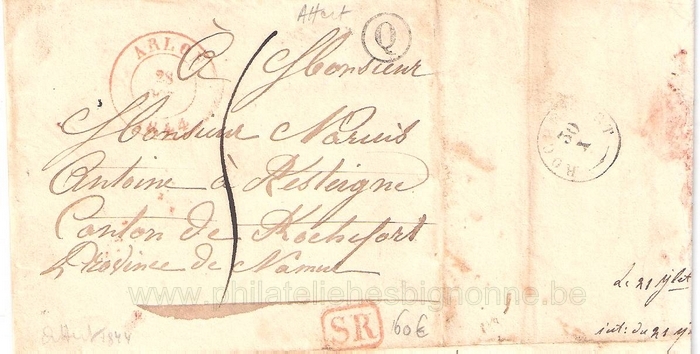 Attert
Q
ARLON
28
1844
à Monsieur
Monsieur Narcis
Antoine à Resteigne
Canton de Rochefort
Province de Namur
ROCHEFORT
30
www.philateliehesbignonne.be
SR
160€
1844
Le 21
int: du 21